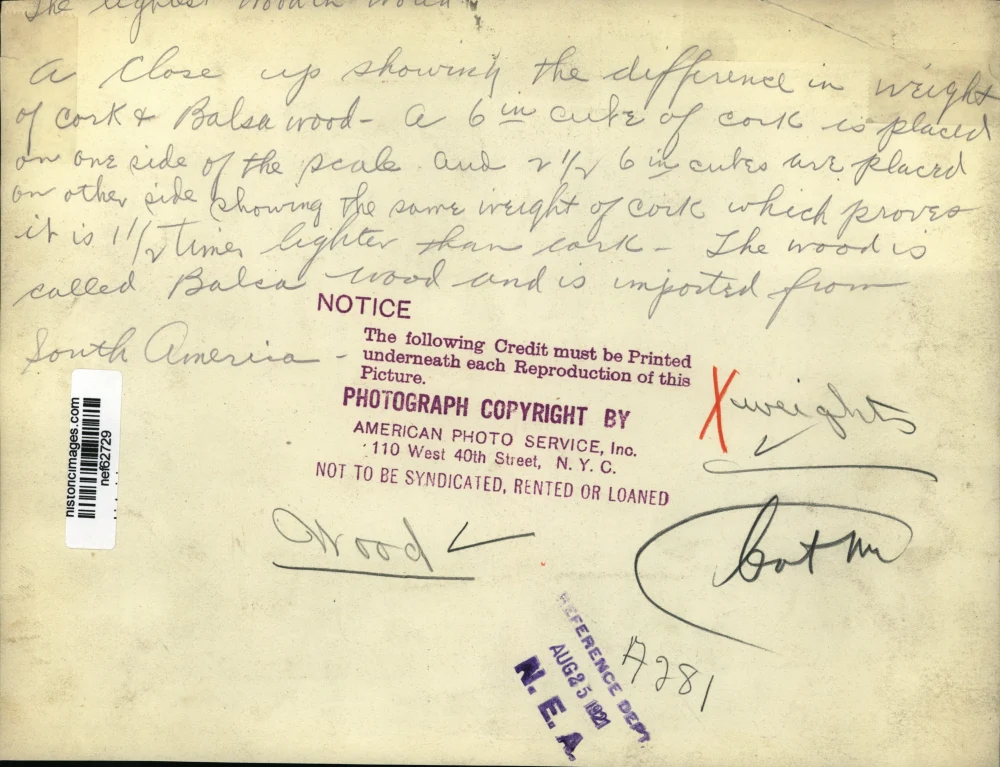 The lightest wood in world.
A close up showing the difference in weight
of cork & Balsa wood - A 6 in cube of cork is placed
on one side of the scale and 2 1/2 6 in cubes are placed
on other side showing the same weight of cork which proves
it is 1 1/2 Times lighter than cork - The wood is
called Balsa wood and is imported from
South America -
NOTICE
The following Credit must be Printed
underneath each Reproduction of this
Picture.
PHOTOGRAPH COPYRIGHT BY
AMERICAN PHOTO SERVICE, Inc.
110 West 40th Street, N. Y. C.
NOT TO BE SYNDICATED, RENTED OR LOANED
X weights
historicimages.com
nef62729
Wood
REFERENCE DEPT.
AUG 25 1921
N. E. A.
A281